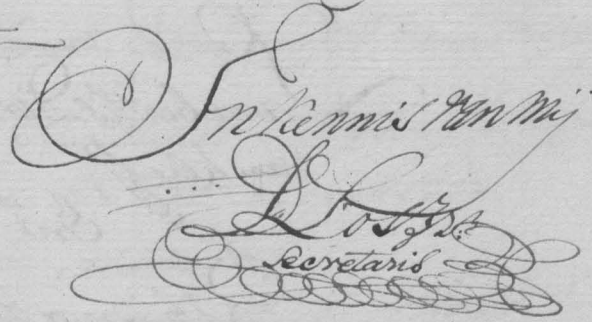 In Kennis van Mij
Secretaris